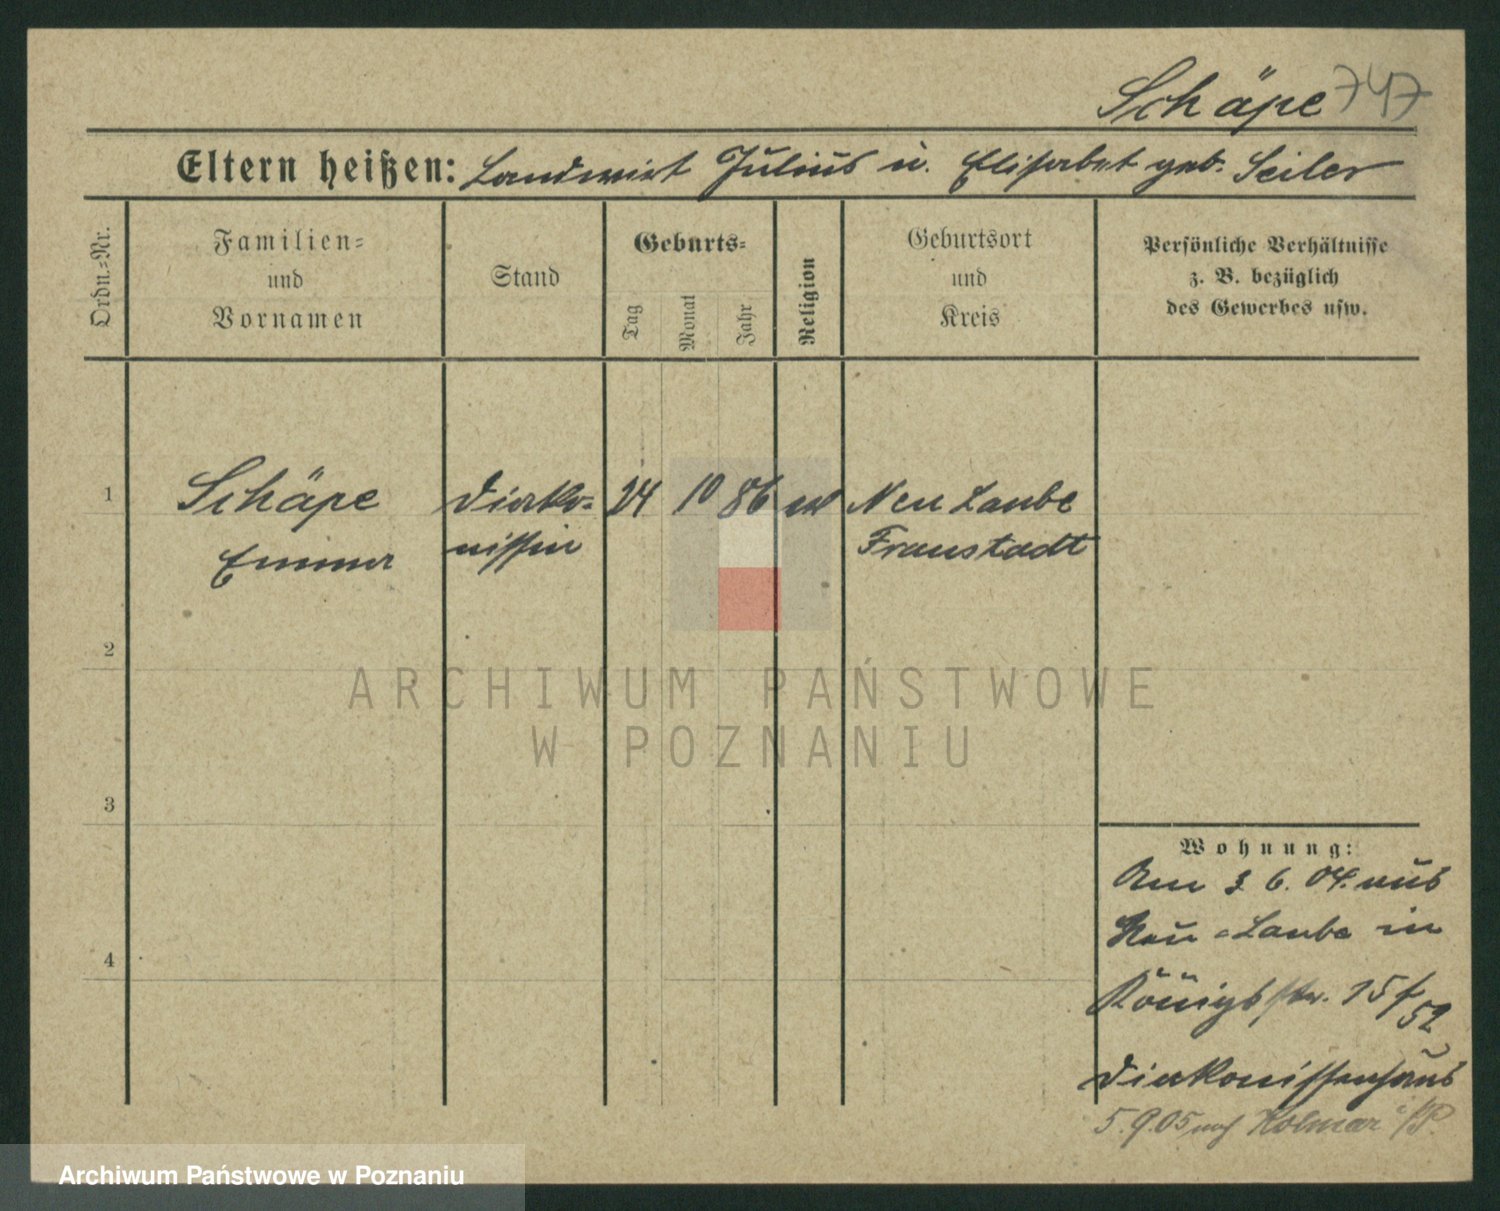 Schäpe 747
Eltern heißen: Landwirt Julius u. Elisabet geb. Seiler
Ordn.-Nr.
Familien-
und
Vornamen
Stand
Geburts-
Tag
Monat
Jahr
Religion
Geburtsort
und
Kreis
Persönliche Verhältnisse
z. B. bezüglich
des Gewerbes usw.
1 Schäpe Diako- 24 10 86 ev Neu Laube
Emma nissin Fraustadt
2
ARCHIWUM PAŃSTWOWE
W POZNANIU
3
Wohnung:
Am 3. 6. 04. aus
Neu-Laube in
4
Königsstr. 15/52
Diakonissenhaus
5.9.05 nach Kolmar i/P.
Archiwum Państwowe w Poznaniu